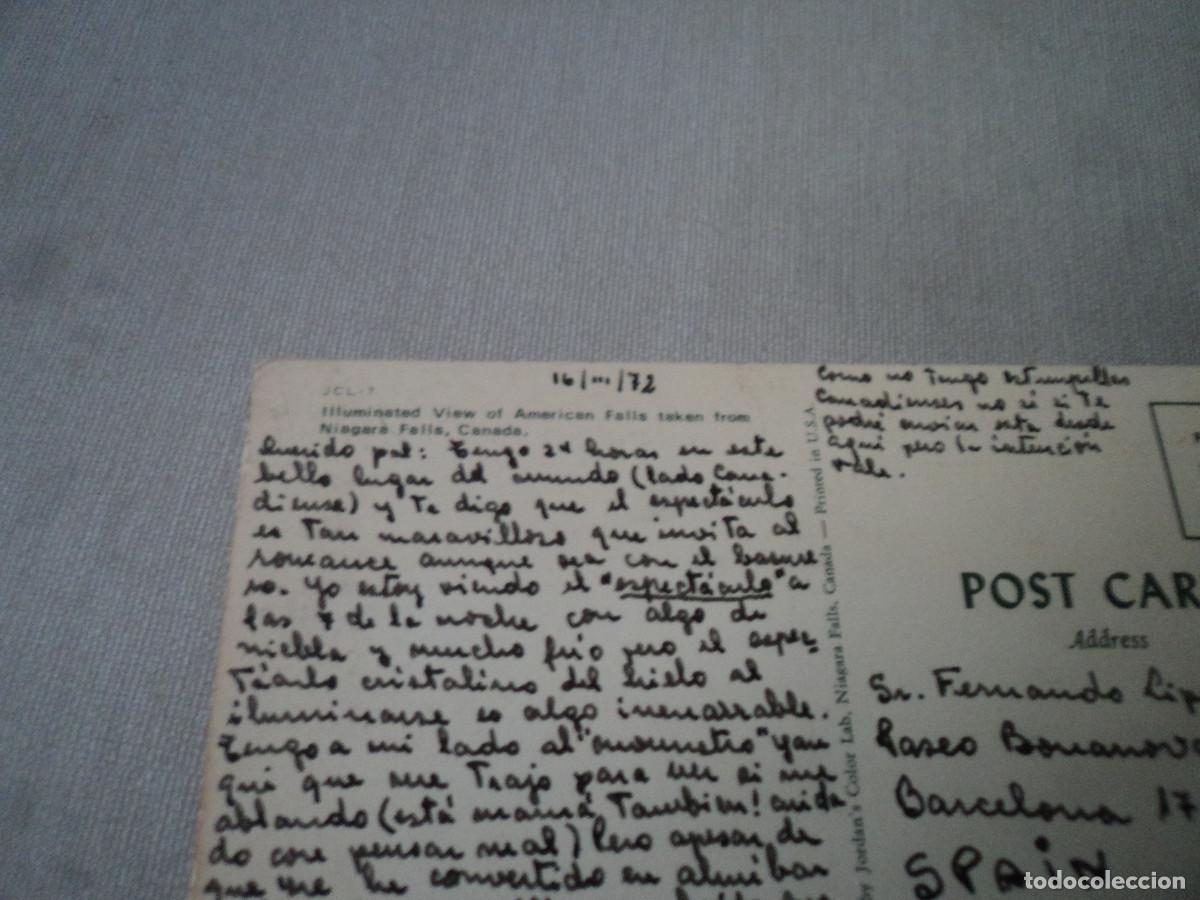 16/III/72
JCL-7
Illuminated View of American Falls taken from
Niagara Falls, Canada.
Querido pal: Tengo 24 horas en este
bello lugar del mundo (lado Cana-
diense) y Te digo que el espectáculo
es Tan maravilloso que invita al
romance aunque sea con el
so. Yo estoy viendo el "espectáculo" a
las 7 de la noche con algo de
niebla y mucho frío pero el espec-
Táculo cristalino del hielo al
iluminarse es algo inenarrable.
Tengo a mi lado al "monstro" yan
qui que me Trajo para ver si me
ablando (está mamá También! cuida
do con pensar mal) Pero apesar de
que me he convertido en almibar
Como no Tengo estampillas
Canadienses no sí si Te
podré enviar esta desde
aquí pero la intención
vale.
by Jordan's Color Lab, Niagara Falls, Canada — Printed in U.S.A.
POST CAR
Address
Sr. Fernando Lip
Paseo Bonanov
Barcelona 17
SPAIN
todocoleccion